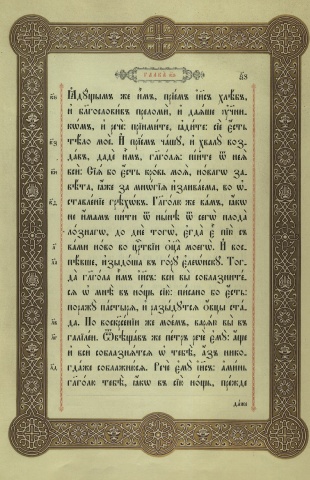 Ꙗ҆дꙋ́щымъ же и҆̀мъ, прїе́мъ і҆и҃съ хлѣ́бъ,
и҆ благослови́въ преломѝ, и҆ даѧ́ше ᲂу҆чн҃и-
кѡ́мъ, и҆ речѐ: прїими́те, ꙗ҆ди́те: сїѐ є҆́сть
тѣ́ло моѐ. И҆ прїе́мъ ча́шꙋ, и҆ хвалꙋ̀ воз-
да́въ, дадѐ и҆̀мъ, глаго́лѧ: пі́йте ѿ неѧ̀
всѝ: Сїѧ́ бо є҆́сть кро́вь моѧ̀, но́вагѡ за-
вѣ́та, ꙗ҆́же за мнѡ́гїѧ и҆злива́ема, во ѡ҆-
ставле́нїе грѣхѡ́въ. Глаго́лю же ва́мъ, ꙗ҆́кѡ
не и҆́мамъ пи́ти ѿ ны́нѣ ѿ сегѡ̀ плода̀
ло́знагѡ, до днѐ тогѡ̀, є҆гда̀ є҆̀ пїю̀ съ
ва́ми но́во во црⷭ҇твїи ѻ҆ц҃а̀ моегѡ̀. И҆ вос-
пѣ́вше, и҆зыдо́ша въ го́рꙋ є҆леѡ́нскꙋ. Тог-
да̀ глаго́ла и҆̀мъ і҆и҃съ: всѝ вы̀ соблазните́-
сѧ ѡ҆ мнѣ̀ въ но́щь сїю̀: пи́сано бо є҆́сть:
поражꙋ̀ па́стырѧ, и҆ разы́дꙋтсѧ ѻ҆́вцы ста́-
да. По воскрⷭ҇нїи же мое́мъ, варѧ́ю вы̀ въ
галїле́и. Ѿвѣща́въ же пе́тръ речѐ є҆мꙋ̀: а҆́ще
и҆ всѝ соблазнѧ́тсѧ ѡ҆ тебѣ̀, а҆́зъ нико-
гда́же соблажню́сѧ. Речѐ є҆мꙋ̀ і҆и҃съ: а҆ми́нь
глаго́лю тебѣ̀, ꙗ҆́кѡ въ сїю̀ но́щь, пре́жде
да́же